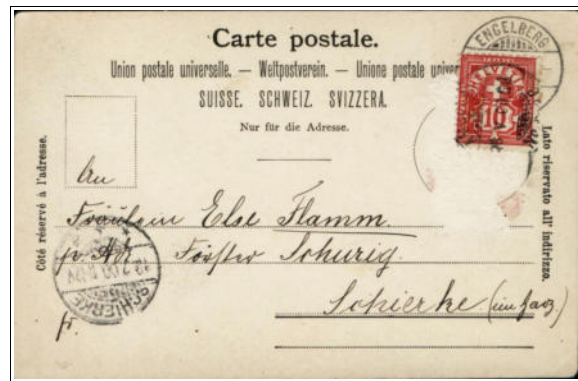 Carte postale.
Union postale universelle. — Weltpostverein. — Unione postale univer
SUISSE. SCHWEIZ. SVIZZERA.
Nur für die Adresse.
ENGELBERG
HELVETIA
10
Côté réservé à l'adresse.
Lato riservato all' indirizzo.
An
Fräulein Else Flamm.
pr. Adr. Förster Schurig.
Schierke (im Harz)
SCHIERKE
fr.